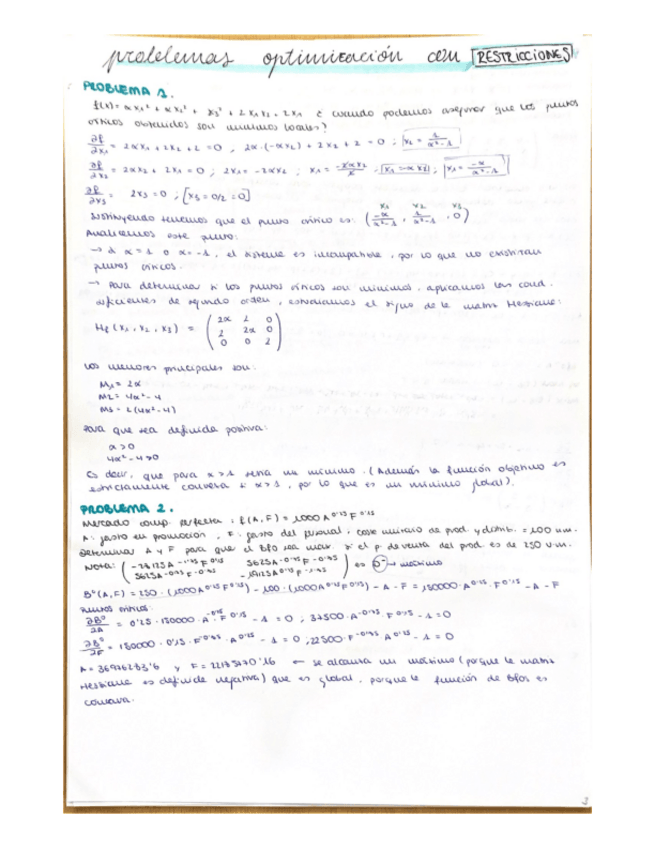 problemas optimización con RESTRICCIONES
PROBLEMA 1.
f(x) = αx₁² + αx₂² + x₃² + 2x₁x₂ + 2x₁ ¿ cuando podemos asegurar que los puntos
críticos obtenidos son mínimos locales?
∂f/∂x₁ = 2αx₁ + 2x₂ + 2 = 0 ; 2α·(-αx₂) + 2x₂ + 2 = 0 ; x₂ = 1/(α²-1)
∂f/∂x₂ = 2αx₂ + 2x₁ = 0 ; 2x₁ = -2αx₂ ; x₁ = -2αx₂/2 ; x₁ = -αx₂ ; x₁ = -α/(α²-1)
∂f/∂x₃ = 2x₃ = 0 ; [x₃ = 0/2 = 0]
x₁ x₂ x₃
Sustituyendo tenemos que el punto crítico es: (-α/(α²-1), 1/(α²-1), 0)
Analicemos este punto:
→ Si α = 1 o α = -1, el sistema es incompatible, por lo que no existirían
puntos críticos.
→ Para determinar si los puntos críticos son mínimos, aplicamos las cond.
suficientes de segundo orden, estudiamos el signo de la matriz Hessiana:
Hf (x₁, x₂, x₃) = (2α 2 0
2 2α 0
0 0 2)
Los menores principales son:
M₁ = 2α
M2 = 4α² - 4
M3 = 2(4α² - 4)
Para que sea definida positiva:
α > 0
4α² - 4 > 0
Es decir, que para α > 1 sería un mínimo. (Además la función objetivo es
estrictamente convexa si α > 1, por lo que es un mínimo global).
PROBLEMA 2.
Mercado comp. perfecta : f(A, F) = 1000 A^0'25 F^0'15
A: gasto en promoción, F: gasto del personal, coste unitario de prod. y distrib. = 100 u.m.
Determinar A y F para que el Bfo sea max. si el p. de venta del prod. es de 250 u.m.
Nota:
B°(A, F) = 250 · (1000 A^0'25 F^0'15) - 100 · (1000 A^0'25 F^0'15) - A - F = 150000 · A^0'25 · F^0'15 - A - F
Puntos críticos:
∂B°/∂A = 0'25 · 150000 · A^-0'75 · F^0'15 - 1 = 0 ; 37500 · A^-0'75 · F^0'15 - 1 = 0
∂B°/∂F = 150000 · 0'15 · F^-0'85 · A^0'25 - 1 = 0 ; 22500 · F^-0'85 A^0'25 - 1 = 0
← se alcanza un máximo (porque la matriz
Hessiana es definida negativa) que es global, porque la función de Bfos es
cóncava.